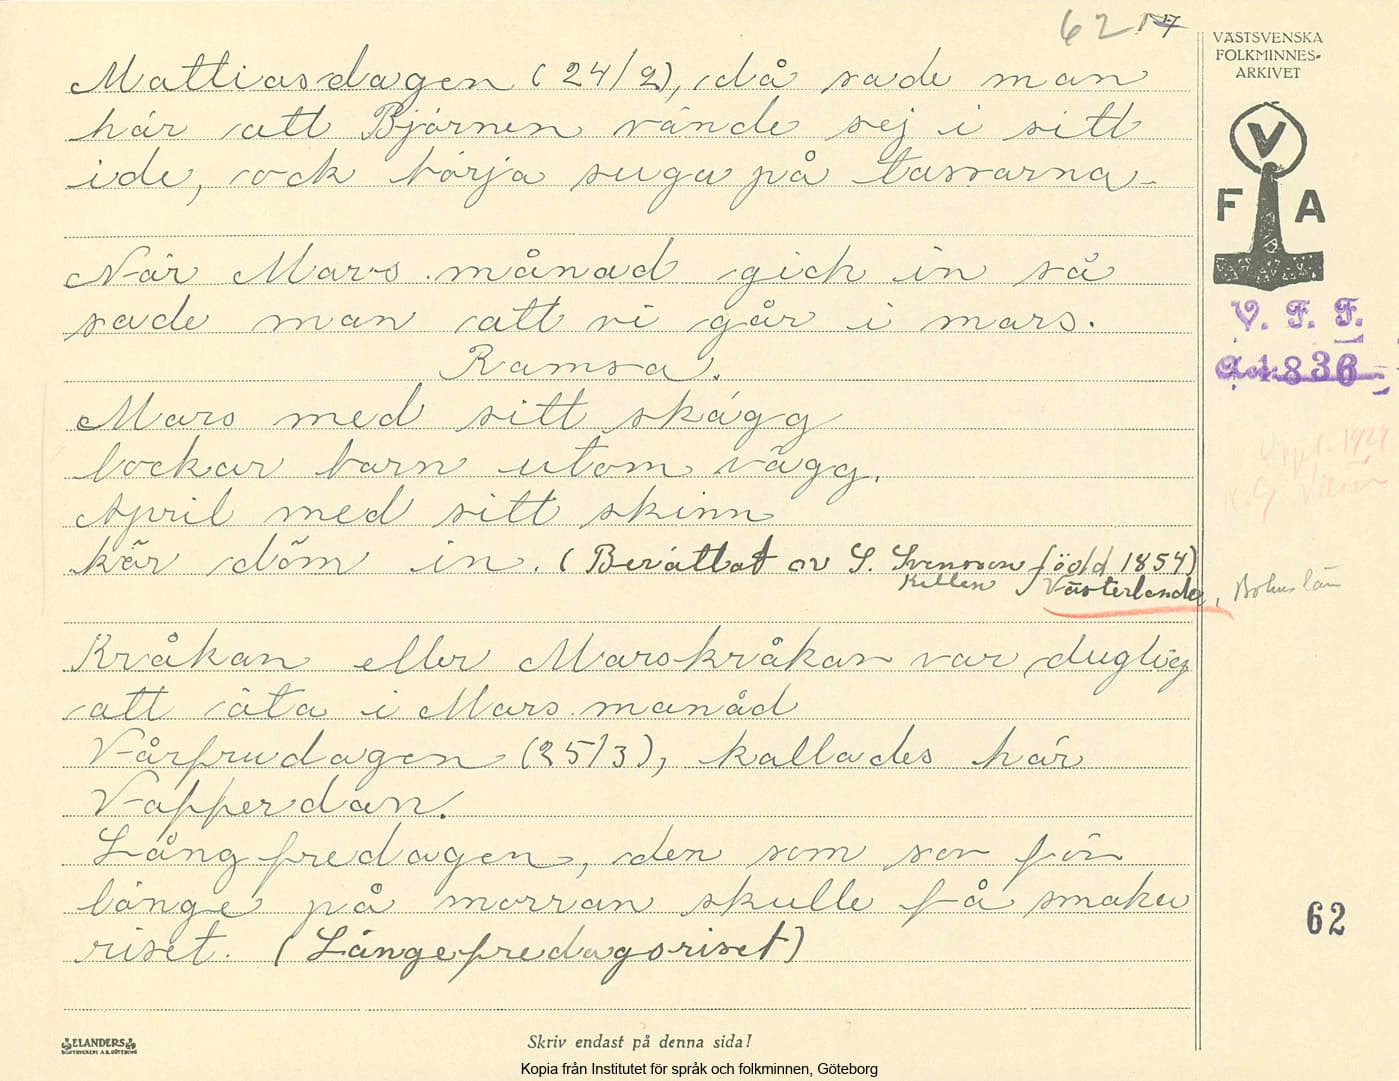 62
Mattiasdagen (24/2), då sade man
här att Björnen vände sej i sitt
ide, ock börja suga på tassarna-
När Mars månad gick in så
sade man att vi går i mars.
Ramsa.
Mars med sitt skägg
lockar barn utom vägg.
April med sitt skinn
kär döm in. (Berättat av S. Svensson född 1854)
Killen Västerlanda, Bohuslän
Kråkan eller Marskråkan var duglig
att äta i Mars månad
Vårfrudagen (25/3), kallades här
Vapperdan.
Långfredagen, den som sov för
länge på morran skulle få smaka
riset. (Långefredagsriset)
VÄSTSVENSKA
FOLKMINNES-
ARKIVET
V
F A
V. F. F.
1836
1929
62
ELANDERS
BOKTRYCKERI A.B. GÖTEBORG
Skriv endast på denna sida!
Kopia från Institutet för språk och folkminnen, Göteborg